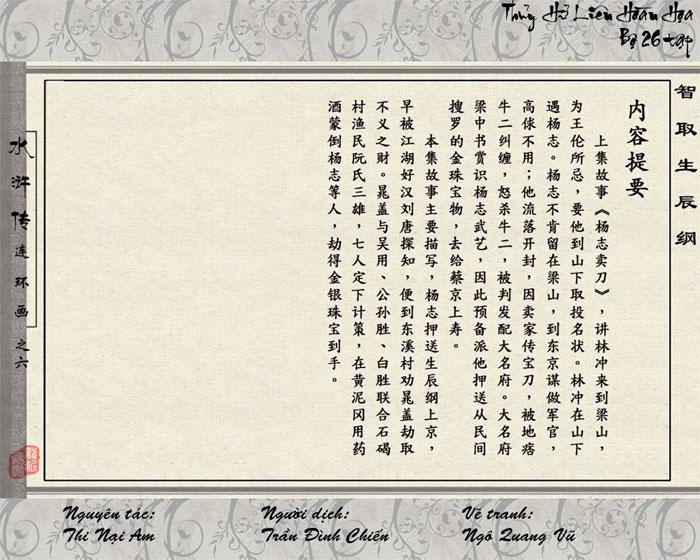 Thủy Hử Liên Hoàn Họa
Bộ 26 tập
智取生辰纲
内容提要
上集故事《杨志卖刀》，讲林冲来到梁山，
为王伦所忌，要他到山下取投名状。林冲在山下
遇杨志。杨志不肯留在梁山，到东京谋做军官，
高俅不用；他流落开封，因卖家传宝刀，被地痞
牛二纠缠，怒杀牛二，被判发配大名府。大名府
梁中书赏识杨志武艺，因此预备派他押送从民间
搜罗的金珠宝物，去给蔡京上寿。
本集故事主要描写，杨志押送生辰纲上京，
早被江湖好汉刘唐探知，便到东溪村劝晁盖劫取
不义之财。晁盖与吴用、公孙胜、白胜联合石碣
村渔民阮氏三雄，七人定下计策，在黄泥冈用药
酒蒙倒杨志等人，劫得金银珠宝到手。
水浒传连环画之六
Nguyên tác:
Thi Nại Am
Người dịch:
Trần Đình Chiến
Vẽ tranh:
Ngô Quang Vũ